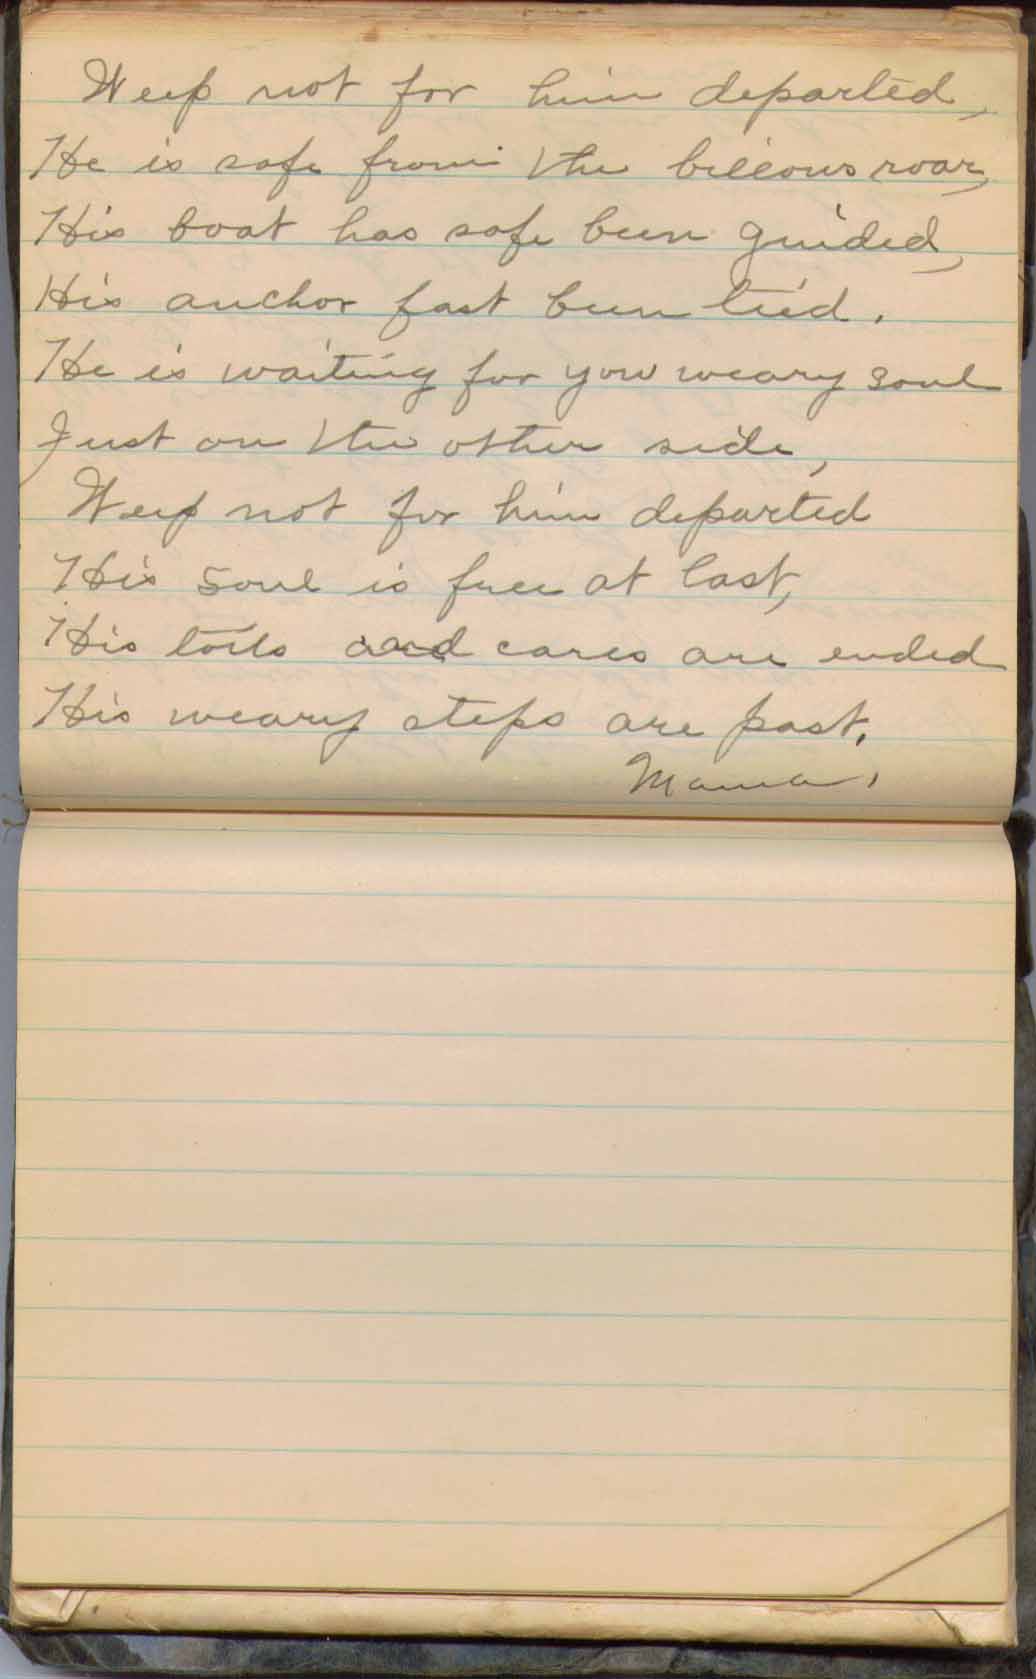 Weep not for him departed,
He is safe from the billows roar,
His boat has safe been guided,
His anchor fast been tied.
He is waiting for you weary soul
Just on the other side,
Weep not for him departed
His soul is free at last,
His toils and cares are ended
His weary steps are past.
Mama.